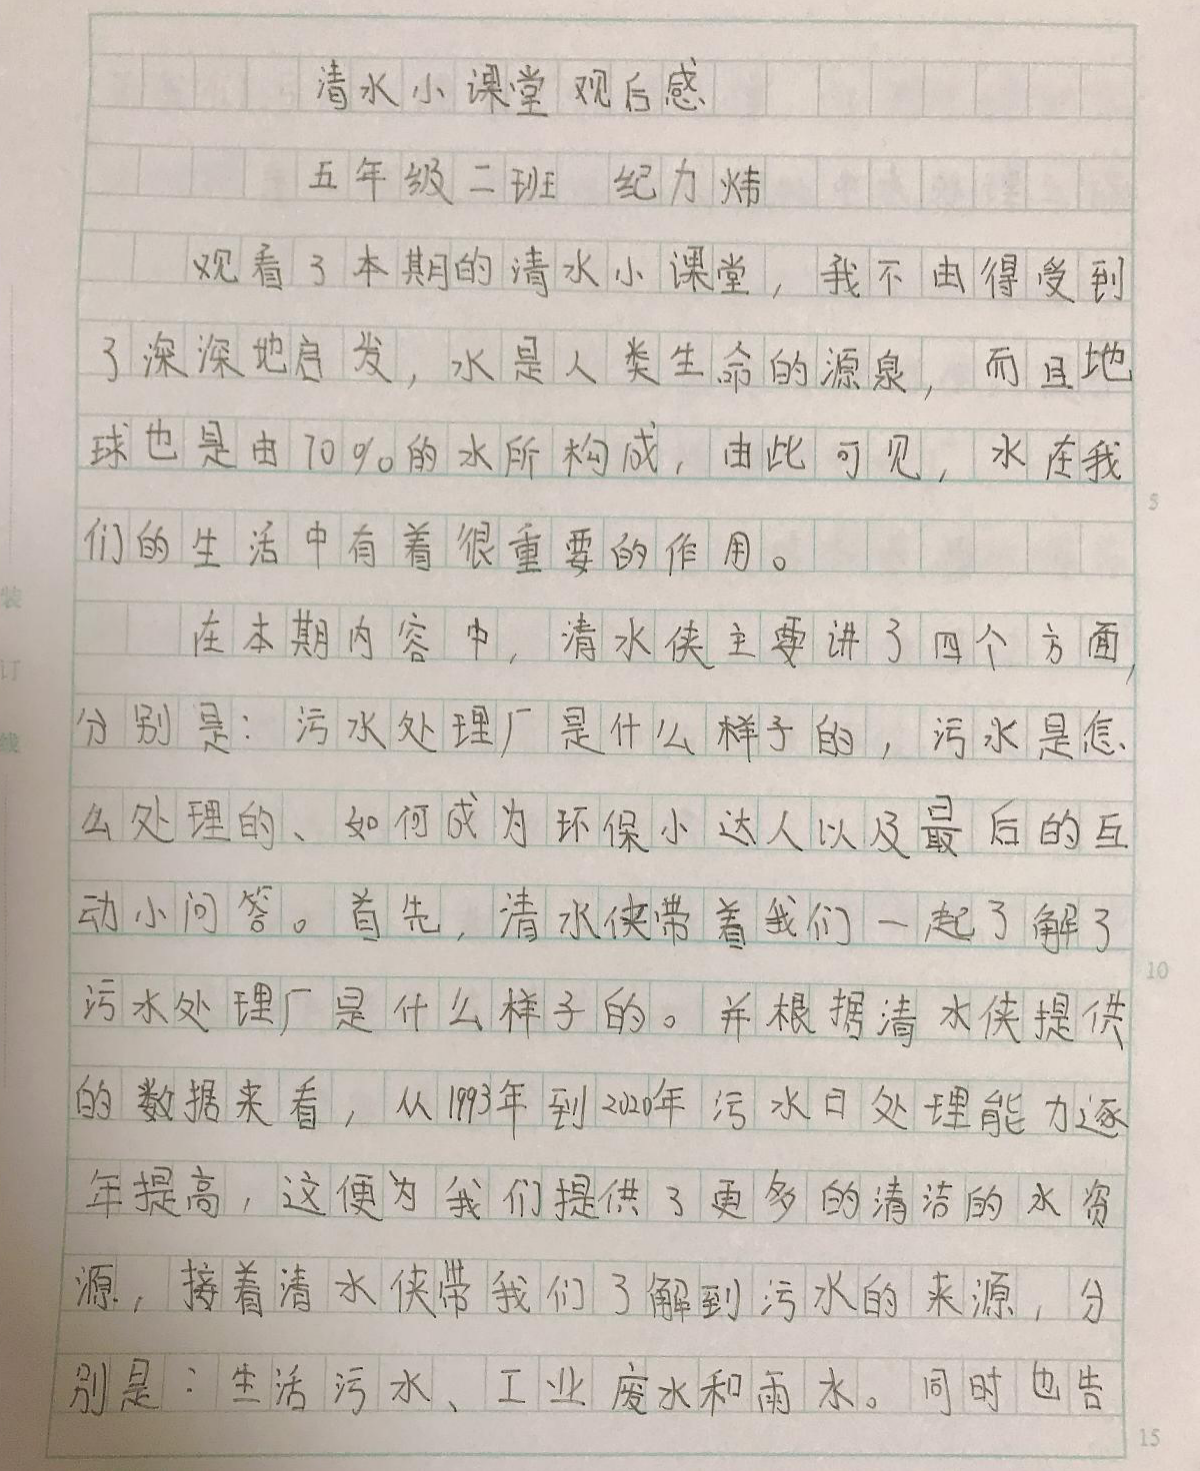 清水小课堂观后感
五年级二班 纪力炜
观看了本期的清水小课堂，我不由得受到
了深深地启发，水是人类生命的源泉，而且地
球也是由70%的水所构成，由此可见，水在我
们的生活中有着很重要的作用。
在本期内容中，清水侠主要讲了四个方面，
分别是：污水处理厂是什么样子的，污水是怎
么处理的、如何成为环保小达人以及最后的互
动小问答。首先，清水侠带着我们一起了解了
污水处理厂是什么样子的。并根据清水侠提供
的数据来看，从1993年到2020年污水日处理能力逐
年提高，这便为我们提供了更多的清洁的水资
源，接着清水侠带我们了解到污水的来源，分
别是：生活污水、工业废水和雨水。同时也告
装
订
线
5
10
15